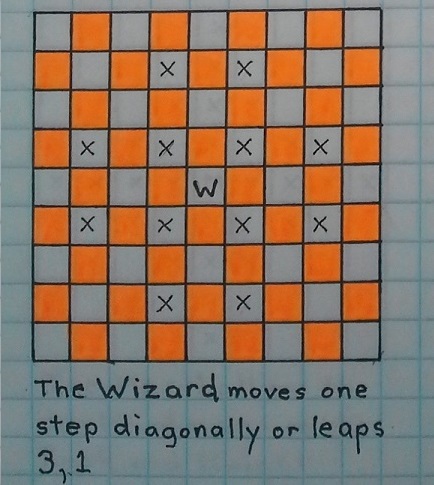 X X
X X X X
W
X X X X
X X
The Wizard moves one
step diagonally or leaps
3,1